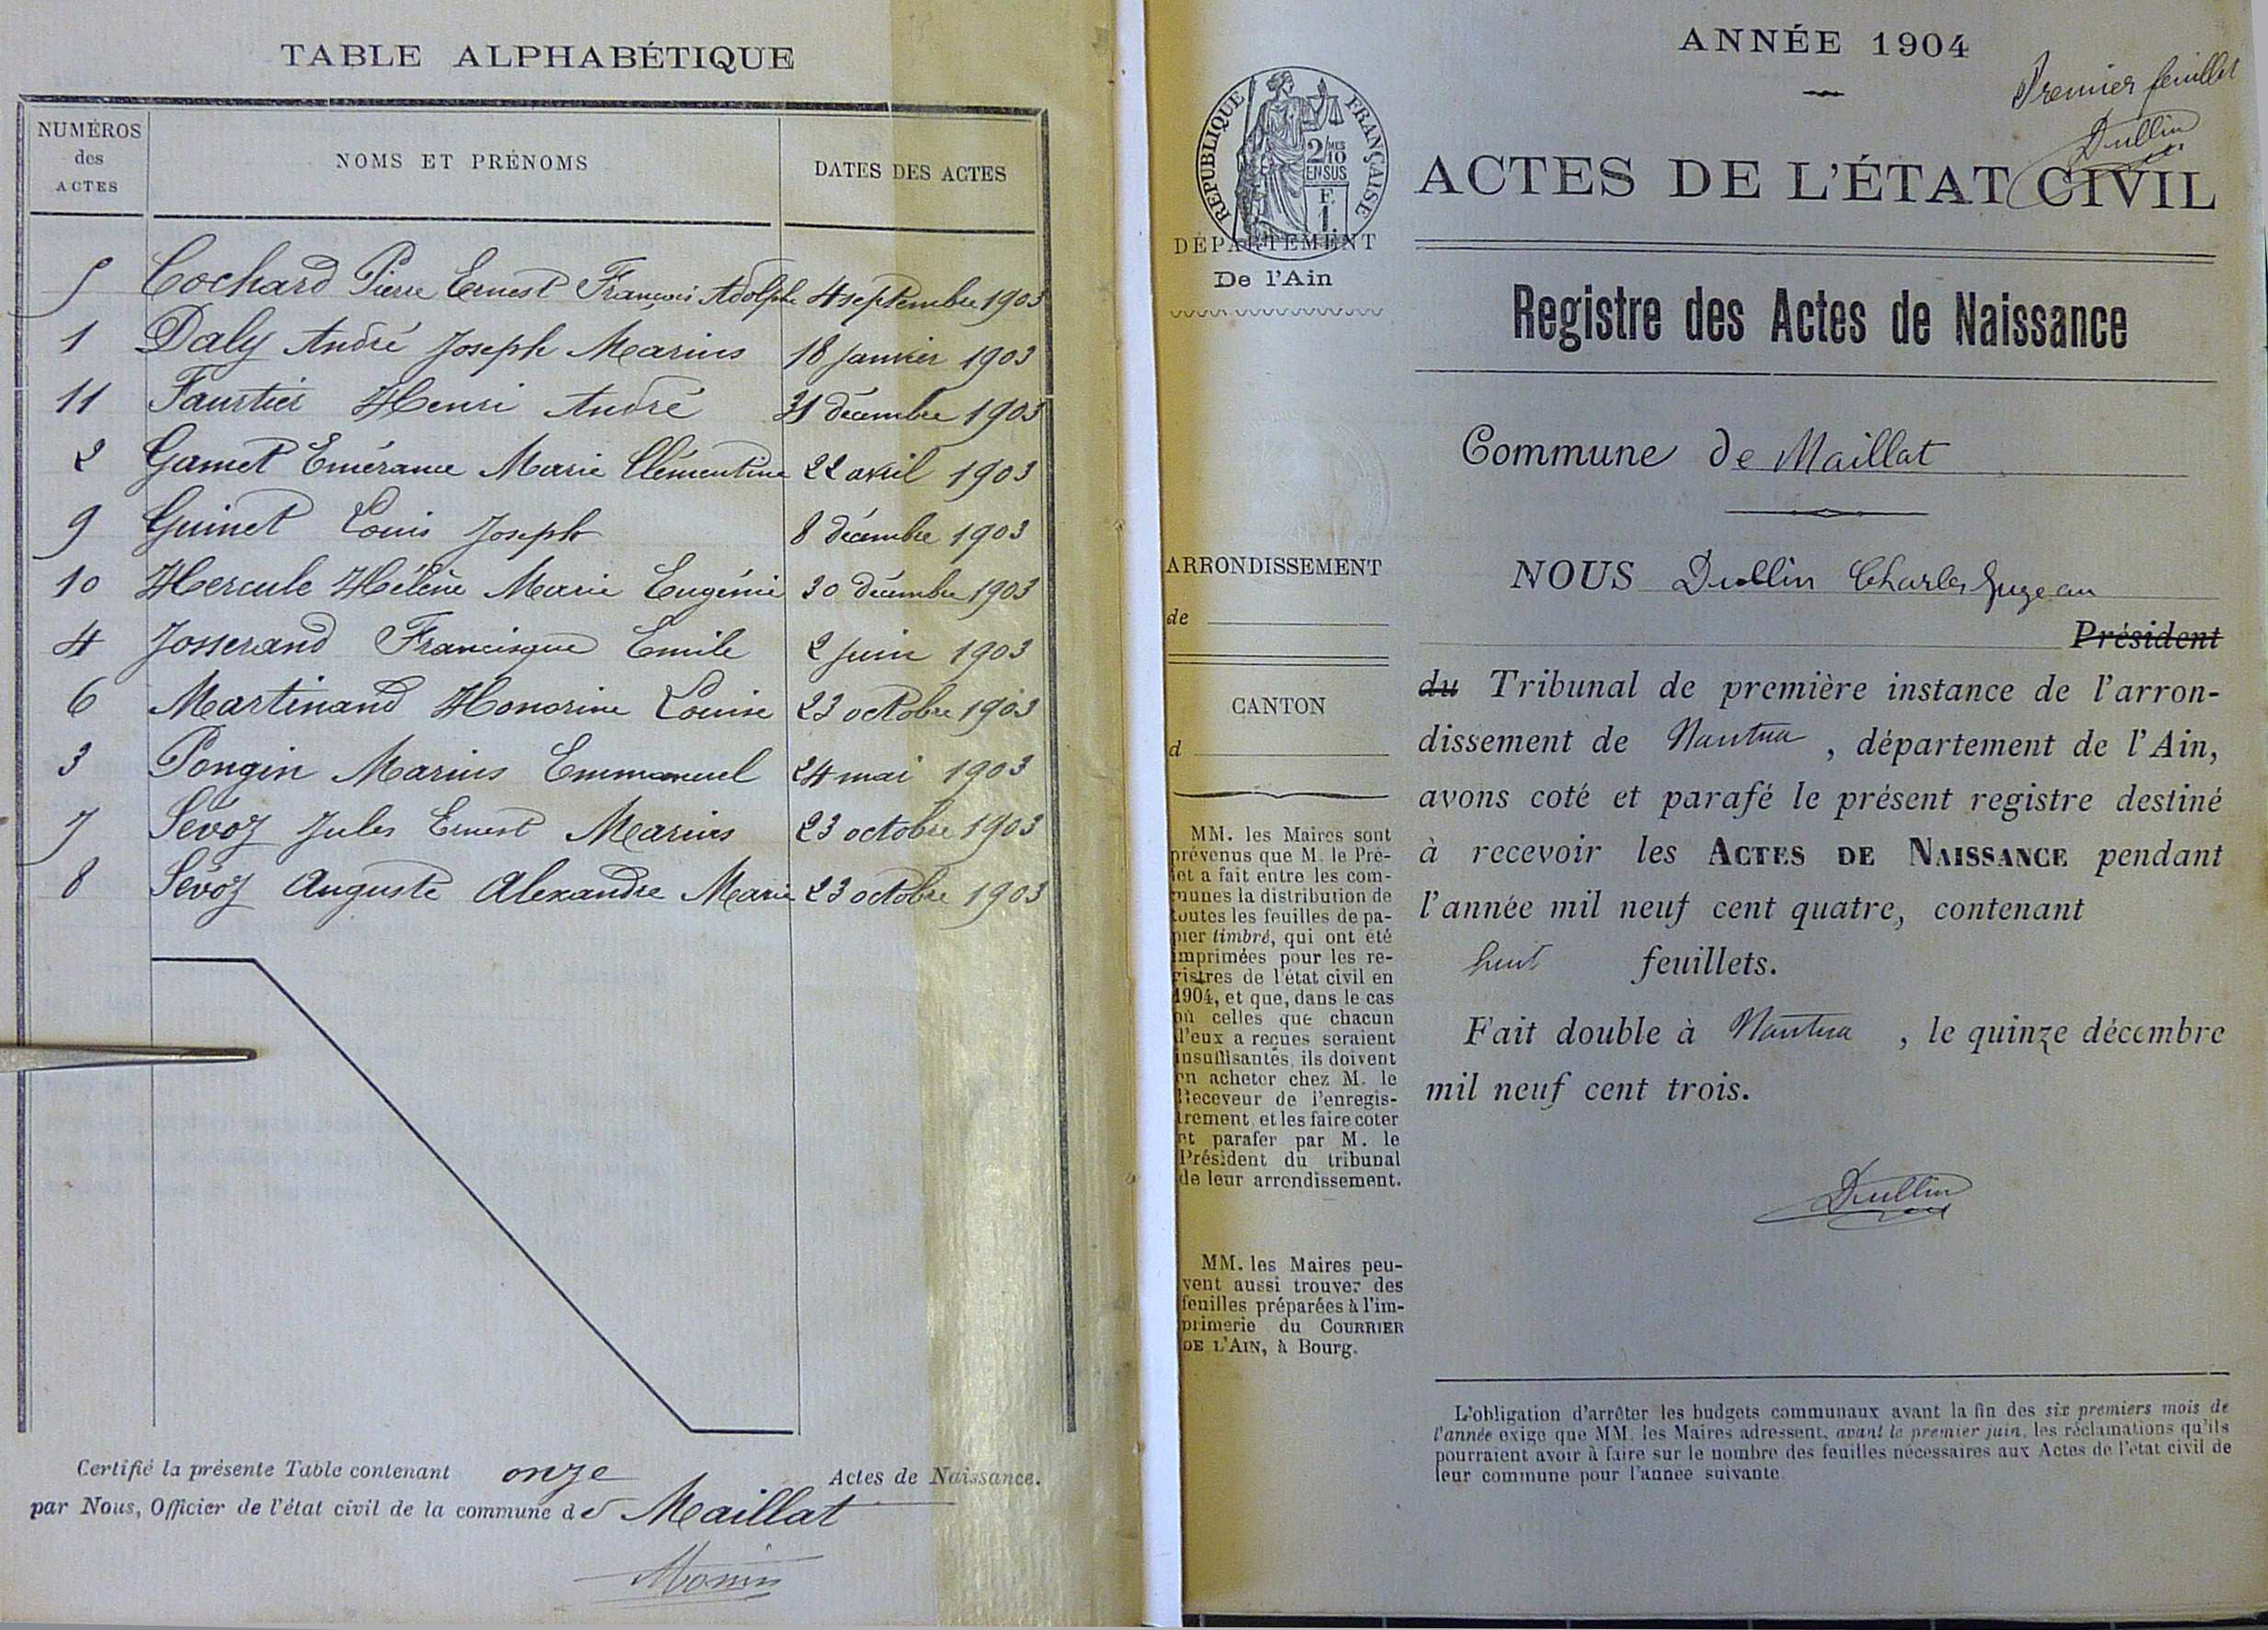 TABLE ALPHABÉTIQUE
NUMÉROS des ACTES
NOMS ET PRÉNOMS
DATES DES ACTES
5 Cochard Pierre Ernest François Adolphe 4 septembre 1903
1 Daly André Joseph Marius 18 janvier 1903
11 Faustier Henri André 31 décembre 1903
2 Gamet Emérance Marie Clémentine 22 avril 1903
9 Guinet Louis Joseph 8 décembre 1903
10 Hercule Hélène Marie Eugénie 30 décembre 1903
4 Josserand Francisque Emile 2 juin 1903
6 Martinand Honorine Louise 23 octobre 1903
3 Pongin Marius Emmanuel 24 mai 1903
7 Sévoz Jules Ernest Marius 23 octobre 1903
8 Sévoz Auguste Alexandre Marie 23 octobre 1903
Certifié la présente Table contenant onze Actes de Naissance.
par Nous, Officier de l'état civil de la commune de Maillat
Monin
ANNÉE 1904
Premier feuillet
Dullin
RÉPUBLIQUE FRANÇAISE
2/10MES
EN SUS
F.
1
ACTES DE L'ÉTAT CIVIL
DÉPARTEMENT
De l'Ain
Registre des Actes de Naissance
Commune de Maillat
ARRONDISSEMENT
de
CANTON
d
MM. les Maires sont
prévenus que M. le Pré-
fet a fait entre les com-
munes la distribution de
toutes les feuilles de pa-
pier timbré, qui ont été
imprimées pour les re-
gistres de l'état civil en
1904, et que, dans le cas
où celles que chacun
d'eux a reçues seraient
insuffisantes, ils doivent
en acheter chez M. le
Receveur de l'enregis-
trement et les faire coter
et parafer par M. le
Président du tribunal
de leur arrondissement.
MM. les Maires peu-
vent aussi trouver des
feuilles préparées à l'im-
primerie du COURRIER
DE L'AIN, à Bourg.
NOUS Dullin Charles
Président
du Tribunal de première instance de l'arron-
dissement de Nantua, département de l'Ain,
avons coté et parafé le présent registre destiné
à recevoir les ACTES DE NAISSANCE pendant
l'année mil neuf cent quatre, contenant
huit feuillets.
Fait double à Nantua, le quinze décembre
mil neuf cent trois.
Dullin
L'obligation d'arrêter les budgets communaux avant la fin des six premiers mois de
l'année exige que MM. les Maires adressent, avant le premier juin, les réclamations qu'ils
pourraient avoir à faire sur le nombre des feuilles nécessaires aux Actes de l'état civil de
leur commune pour l'année suivante.